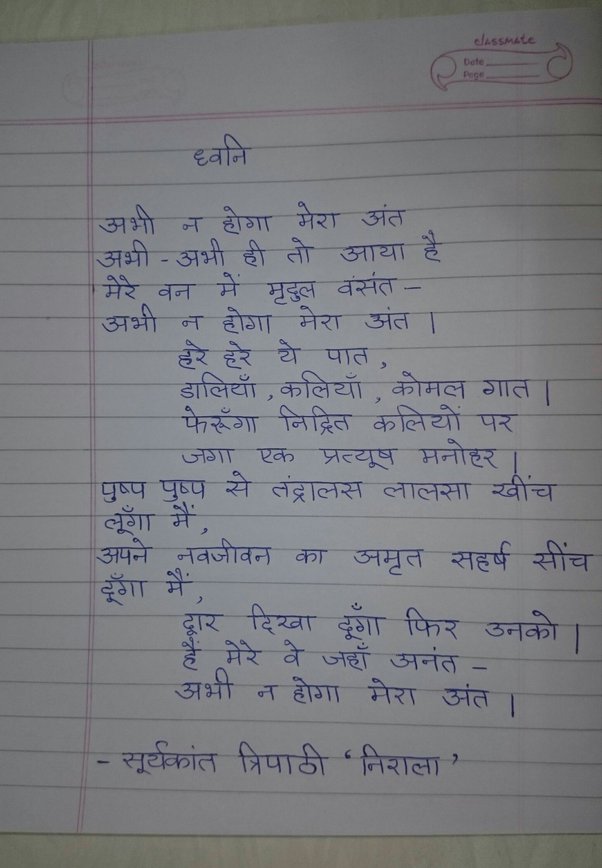 classmate
Date
Page
ध्वनि
अभी न होगा मेरा अंत
अभी - अभी ही तो आया है
मेरे वन में मृदुल वंसंत -
अभी न होगा मेरा अंत ।
हरे हरे ये पात ,
डालियाँ , कलियाँ , कोमल गात ।
फेरूँगा निद्रित कलियों पर
जगा एक प्रत्यूष मनोहर ।
पुष्प पुष्प से तंद्रालस लालसा खींच
लूँगा मैं ,
अपने नवजीवन का अमृत सहर्ष सींच
दूँगा मैं ,
द्वार दिखा दूँगा फिर उनको ।
हैं मेरे वे जहाँ अनंत -
अभी न होगा मेरा अंत ।
- सूर्यकांत त्रिपाठी ‘ निराला ’